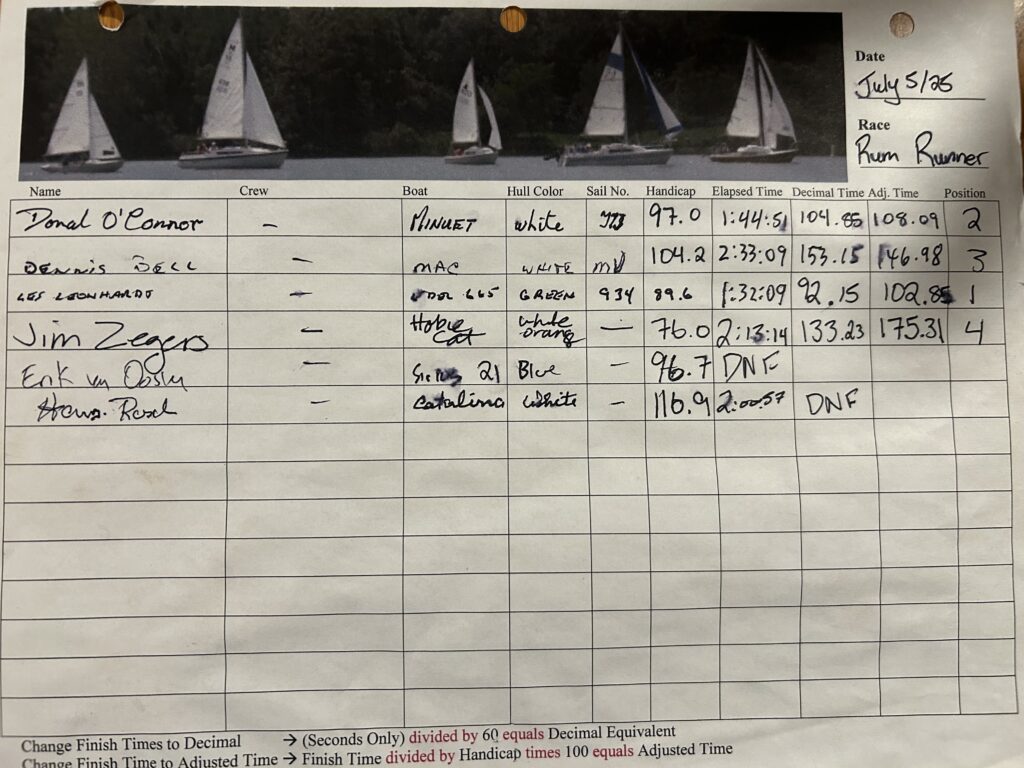 Date
July 5/25
Race
Rum Runner
Name Crew Boat Hull Color Sail No. Handicap Elapsed Time Decimal Time Adj. Time Position
Donal O'Connor — MINUET white 97.0 1:44:51 104.85 108.09 2
DENNIS BELL — MAC WHITE 104.2 2:33:09 153.15 146.98 3
LES LEONHARDT — 665 GREEN 934 89.6 1:32:09 92.15 102.85 1
Jim Zegers — Hobie Cat white orang — 76.0 2:13:14 133.23 175.31 4
Erik — Sirius 21 Blue — 96.7 DNF
— Catalina White — 116.9 2:00:57 DNF
Change Finish Times to Decimal → (Seconds Only) divided by 60 equals Decimal Equivalent
Change Finish Time to Adjusted Time → Finish Time divided by Handicap times 100 equals Adjusted Time